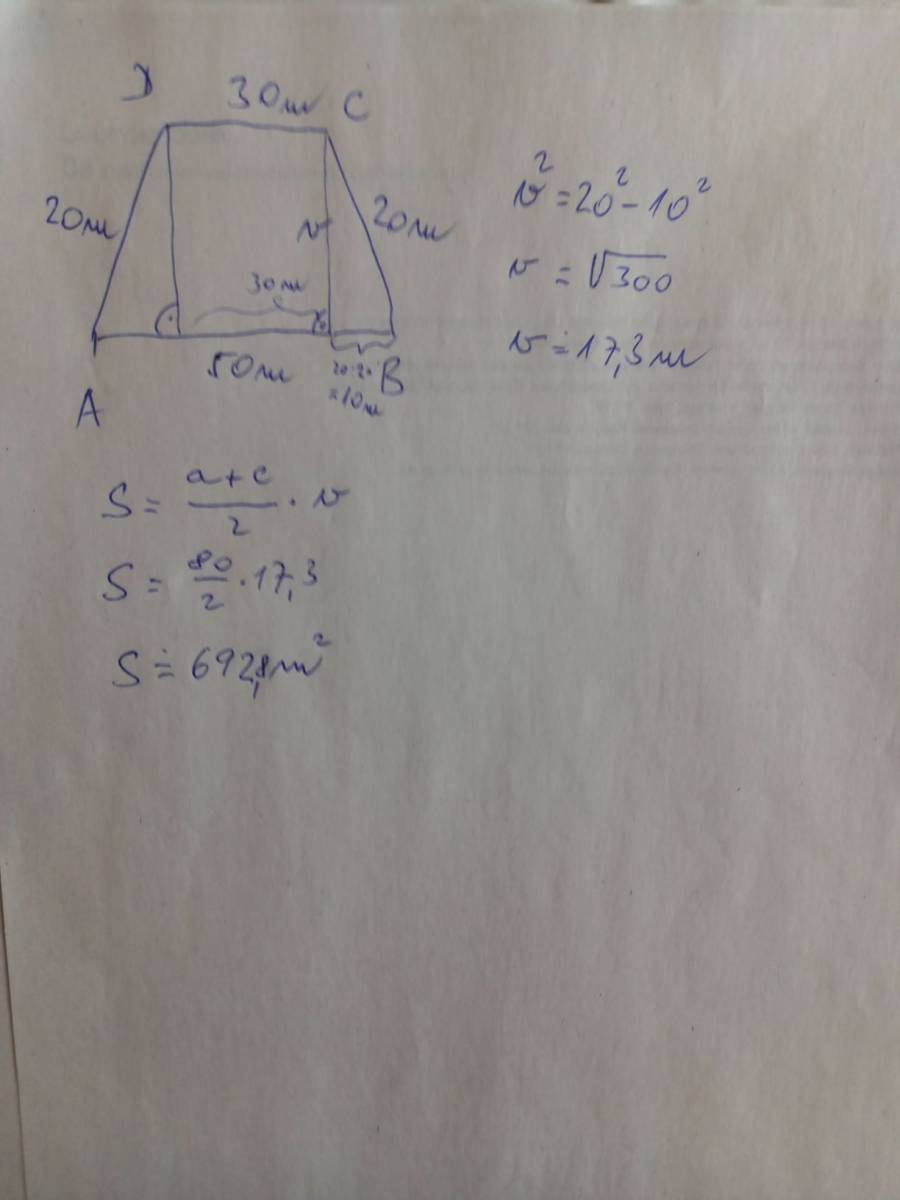 D 30m C
20m v 20m
30m
50m B
=10m
A
v² = 20² - 10²
v = √300
v ≐ 17,3m
S = a+c/2 · v
S = 80/2 · 17,3
S ≐ 692,8m²